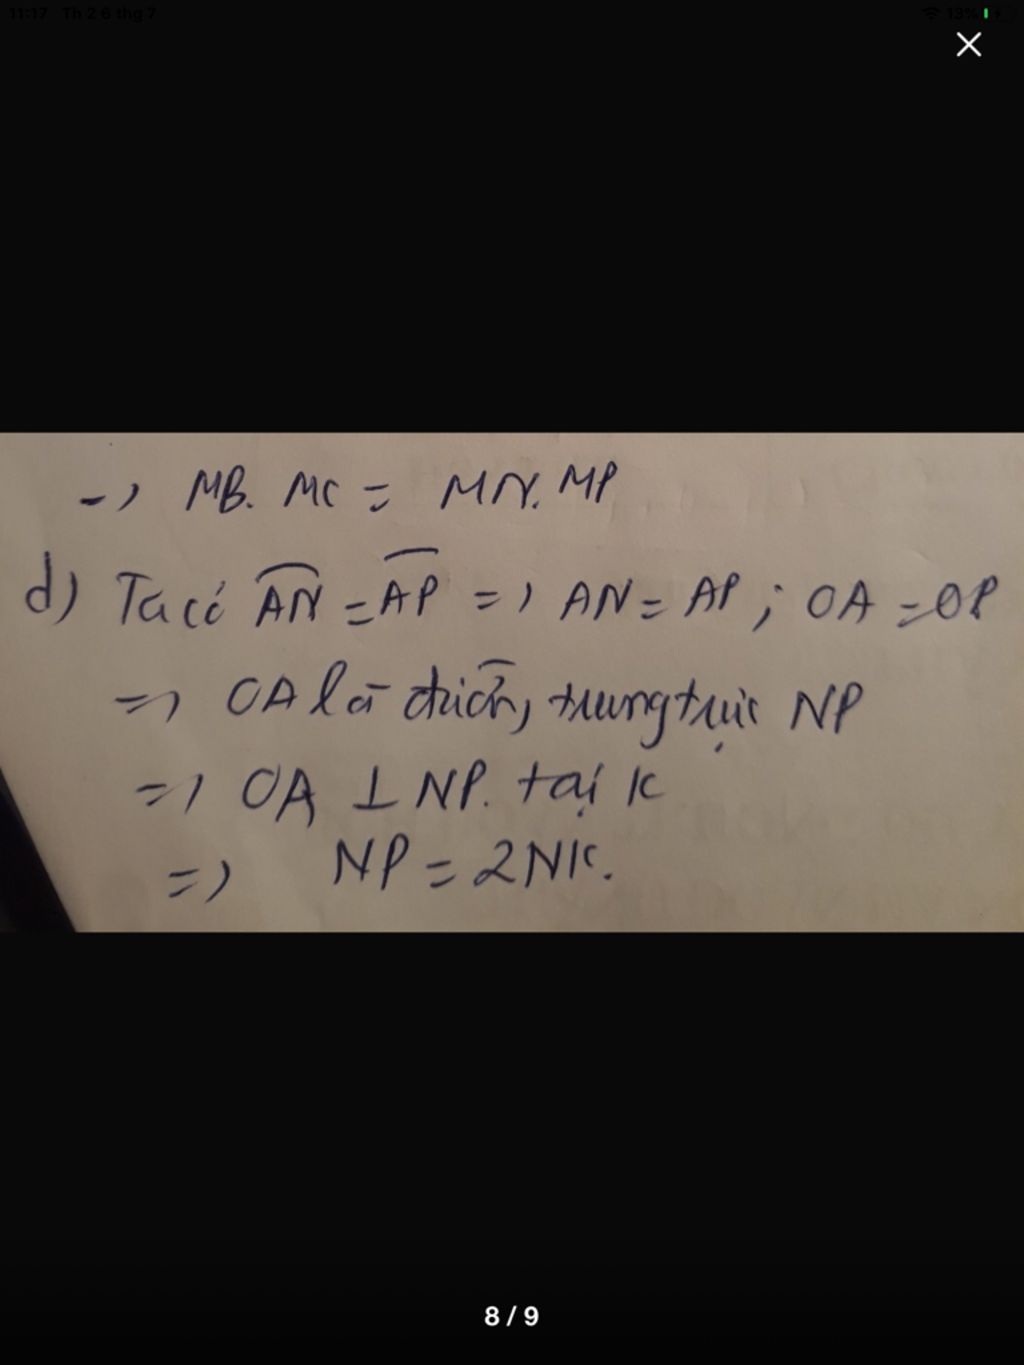 11:17 Th 2 6 thg 7
13%
-) MB. MC = MN. MP
d) Ta có AN = AP =) AN = AP ; OA = OP
=) OA là đường trung trực NP
=) OA ⊥ NP. tại K
=) NP = 2NK.
8 / 9